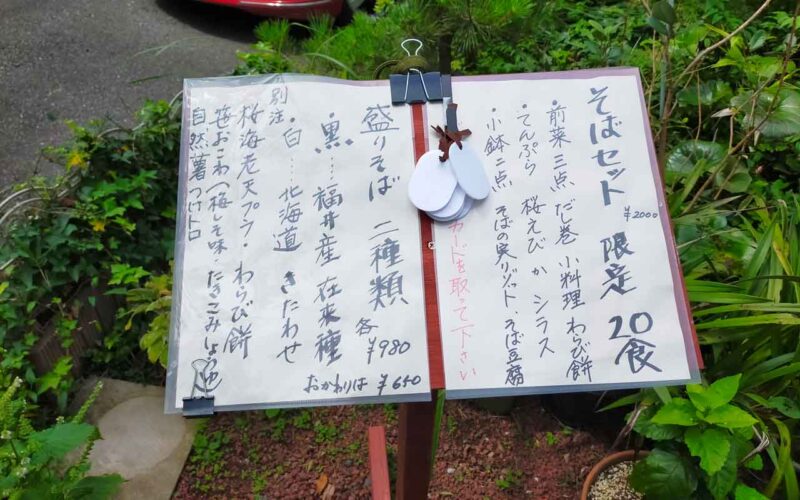 そばセット 限定 20食
¥2000
・前菜 三点 だし巻 小料理 わらび餅
・てんぷら 桜えび か シラス
・小鉢 二点 そばの実リゾット、そば豆腐
カードを取って下さい
盛りそば 二種類 各¥980
・黒…福井産 在来種
・白…北海道 きたわせ
おかわりは ¥650
別注
桜海老天プラ・わらび餅
笹おこわ(梅しそ味・たきこみしょうゆ味
自然薯つけトロ